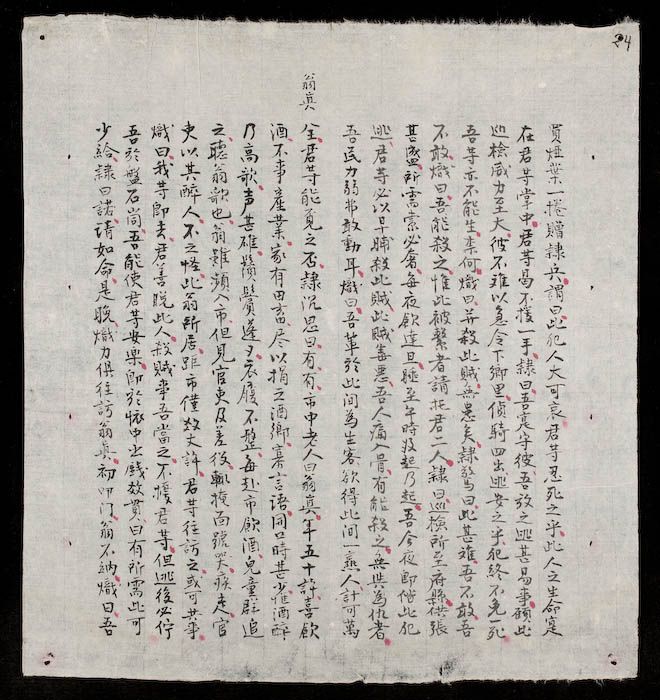 24
買煙葉一捲贈隸兵謂曰此犯人大可哀君等忍死之乎此人之生命寔
在君等掌中君等曷不援一手隸曰吾寔守彼吾放之逃甚易事顧此
巡檢威力至大彼不难以急令下鄉里偵騎四出逃安之乎犯終不免一死
吾等亦不能生奈何熾曰并殺此賊無患矣隸驚曰此甚难吾不敢吾
不敢熾曰吾能殺之惟此被繫者請托君二人隸曰巡檢所至府縣供張
甚盛所需索必奢每夜飲達旦睡至午時後起乃起吾今夜即偕此犯
逃君等必以早晡殺此賊此賊毒惡吾人痛入骨有能殺之無為仇者
吾民力弱弗敢動耳熾曰吾輩於此間為生客欲得此間一熟人計可萬
翁奠
全君等能覓之否隸沉思曰有有市中老人曰翁奠年五十許喜飲
酒不事產業家有田畜尽以捐之酒鄉寡言語開口時甚少惟酒醉
乃高歌声甚雄鬚鬢蓬々衣履不整每赴市飲酒兒童群追
之聽翁歌也翁雖頻入市但見官吏及差役輒掩面號哭疾走官
吏以其醉人不之怪此翁所居距市僅数丈許君等往訪之或可共事
熾曰我等即去君善脱此人殺賊事吾當之不擾君等但逃後必佇
吾於盤石尚吾能使君等安樂即於懷中出錢数貫曰有所需此可
少給隸曰諾請如命是晚熾力俱往訪翁奠初叩门翁不納熾曰吾